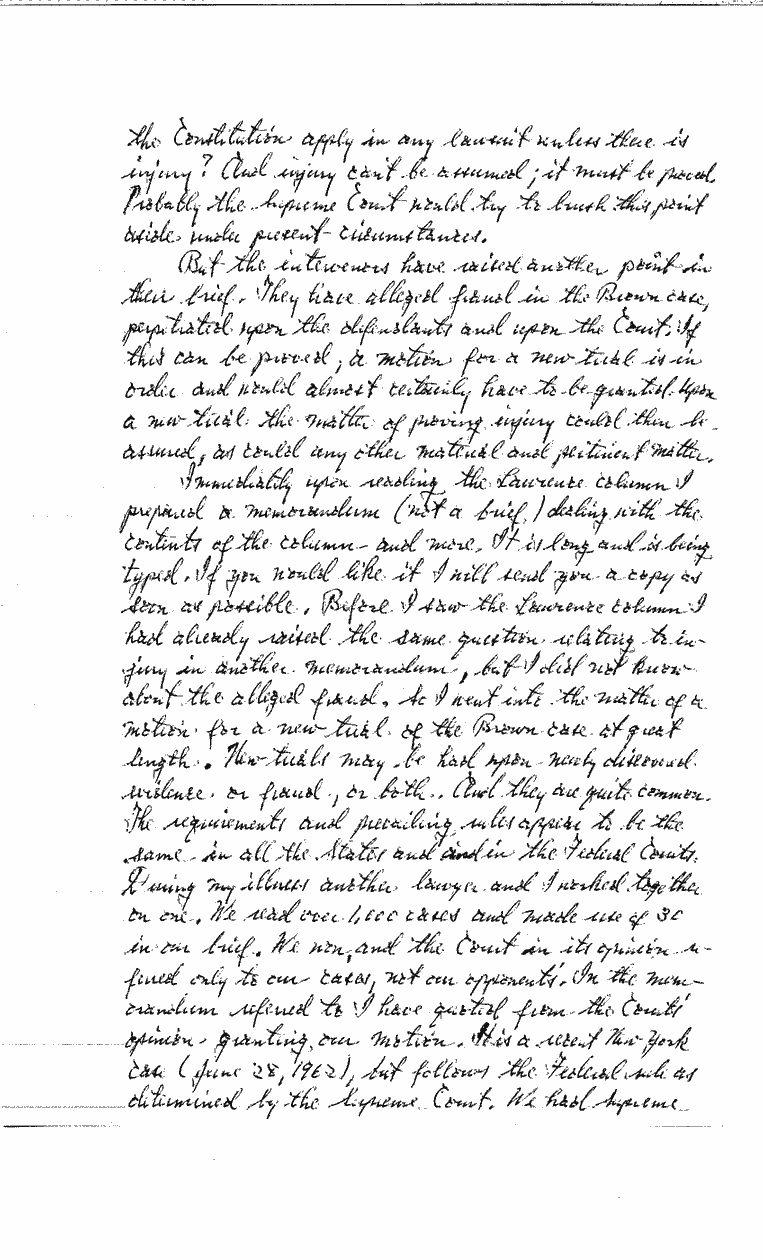 the Constitution apply in any lawsuit unless there is
injury? And injury can't be assumed; it must be proved.
Probably the Supreme Court would try to brush this point
aside under present circumstances.
But the interveners have raised another point in
their brief. They have alleged fraud in the Brown case,
perpetrated upon the defendants and upon the Court. If
this can be proved, a motion for a new trial is in
order and would almost certainly have to be granted. Upon
a new trial the matter of proving injury could then be
assured, as could any other material and pertinent matter.
Immediately upon reading the Lawrence column I
prepared a memorandum (not a brief,) dealing with the
contents of the column - and more. It is long and is being
typed. If you would like it I will send you a copy as
soon as possible. Before I saw the Lawrence column I
had already raised the same question relating to in-
jury in another memorandum, but I did not know
about the alleged fraud. So I went into the matter of a
motion for a new trial of the Brown case at great
length. New trials may be had upon newly discovered
evidence or fraud, or both. And they are quite common.
The requirements and prevailing rules appear to be the
same in all the States and in the Federal Courts.
During my illness another lawyer and I worked together
on one. We read over 1,000 cases and made use of 30
in our brief. We won, and the Court in its opinion re-
ferred only to our cases, not our opponents'. In the mem-
orandum referred to I have quoted from the Courts'
opinion granting our motion. It is a recent New York
case (June 28, 1962), but follows the Federal rule as
determined by the Supreme Court. We had Supreme